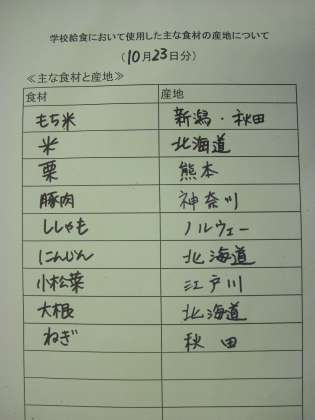 学校給食において使用した主な食材の産地について
（10月23日分）
≪主な食材と産地≫
食材 産地
もち米 新潟・秋田
米 北海道
栗 熊本
豚肉 神奈川
ししゃも ノルウェー
にんじん 北海道
小松菜 江戸川
大根 北海道
ねぎ 秋田